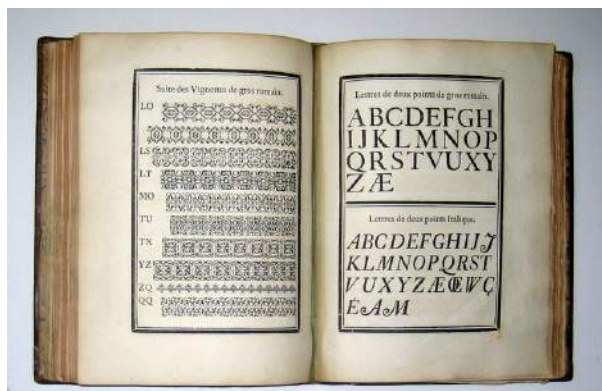 Suite des Vignettes de gros romain.
LO
LS
LT
MO
TU
TX
YZ
ZQ
QQ
Lettres de deux points de gros romain.
ABCDEFGH
IJKLMNOP
QRSTVUXY
ZÆ
Lettres de deux points Italiques.
ABCDEFGHIJJ
KLMNOPQRST
VUXYZÆŒWÇ
ÉAM